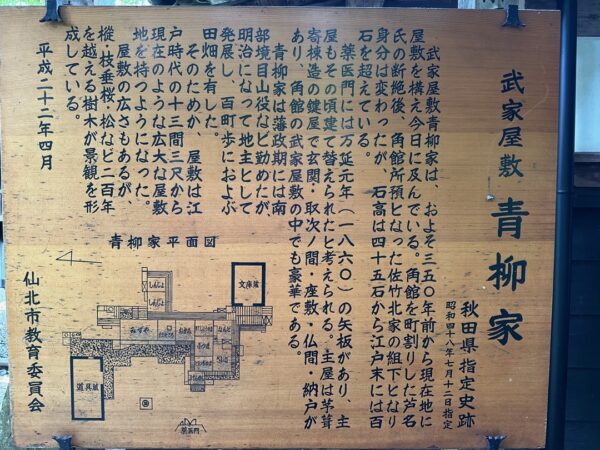 武家屋敷 青柳家
秋田県指定史跡
昭和四十八年七月十二日指定
武家屋敷青柳家は、およそ三五〇年前から現在地に
屋敷を構え今日に及んでいる。角館を町割りした芦名
氏の断絶後、角館所預となった佐竹北家の組下となり
身分は変わったが、石高は四十五石から江戸末には百
石を超えている。
薬医門には万延元年(一八六〇)の矢板があり、主
屋もその頃建て替えられたと考えられる。主屋は芋葺
寄棟造の鍵屋で玄関・取次ノ間・座敷・仏間・納戸が
あり、角館の武家屋敷の中でも豪華である。
青柳家は藩政期には南
部境目山役など勤めたが、
明治になって地主として
発展し、百町歩におよぶ
田畑を有した。
そのためか、屋敷は江
戸時代の十三間三尺から
現在のような広大な屋敷
地を持つようになった。
屋敷の広さもあるが、
樅・枝垂桜・松など二百年
を越える樹木が景観を形
成している。
平成二十二年四月
青柳家平面図
文庫蔵
道具蔵
薬医門
仙北市教育委員会